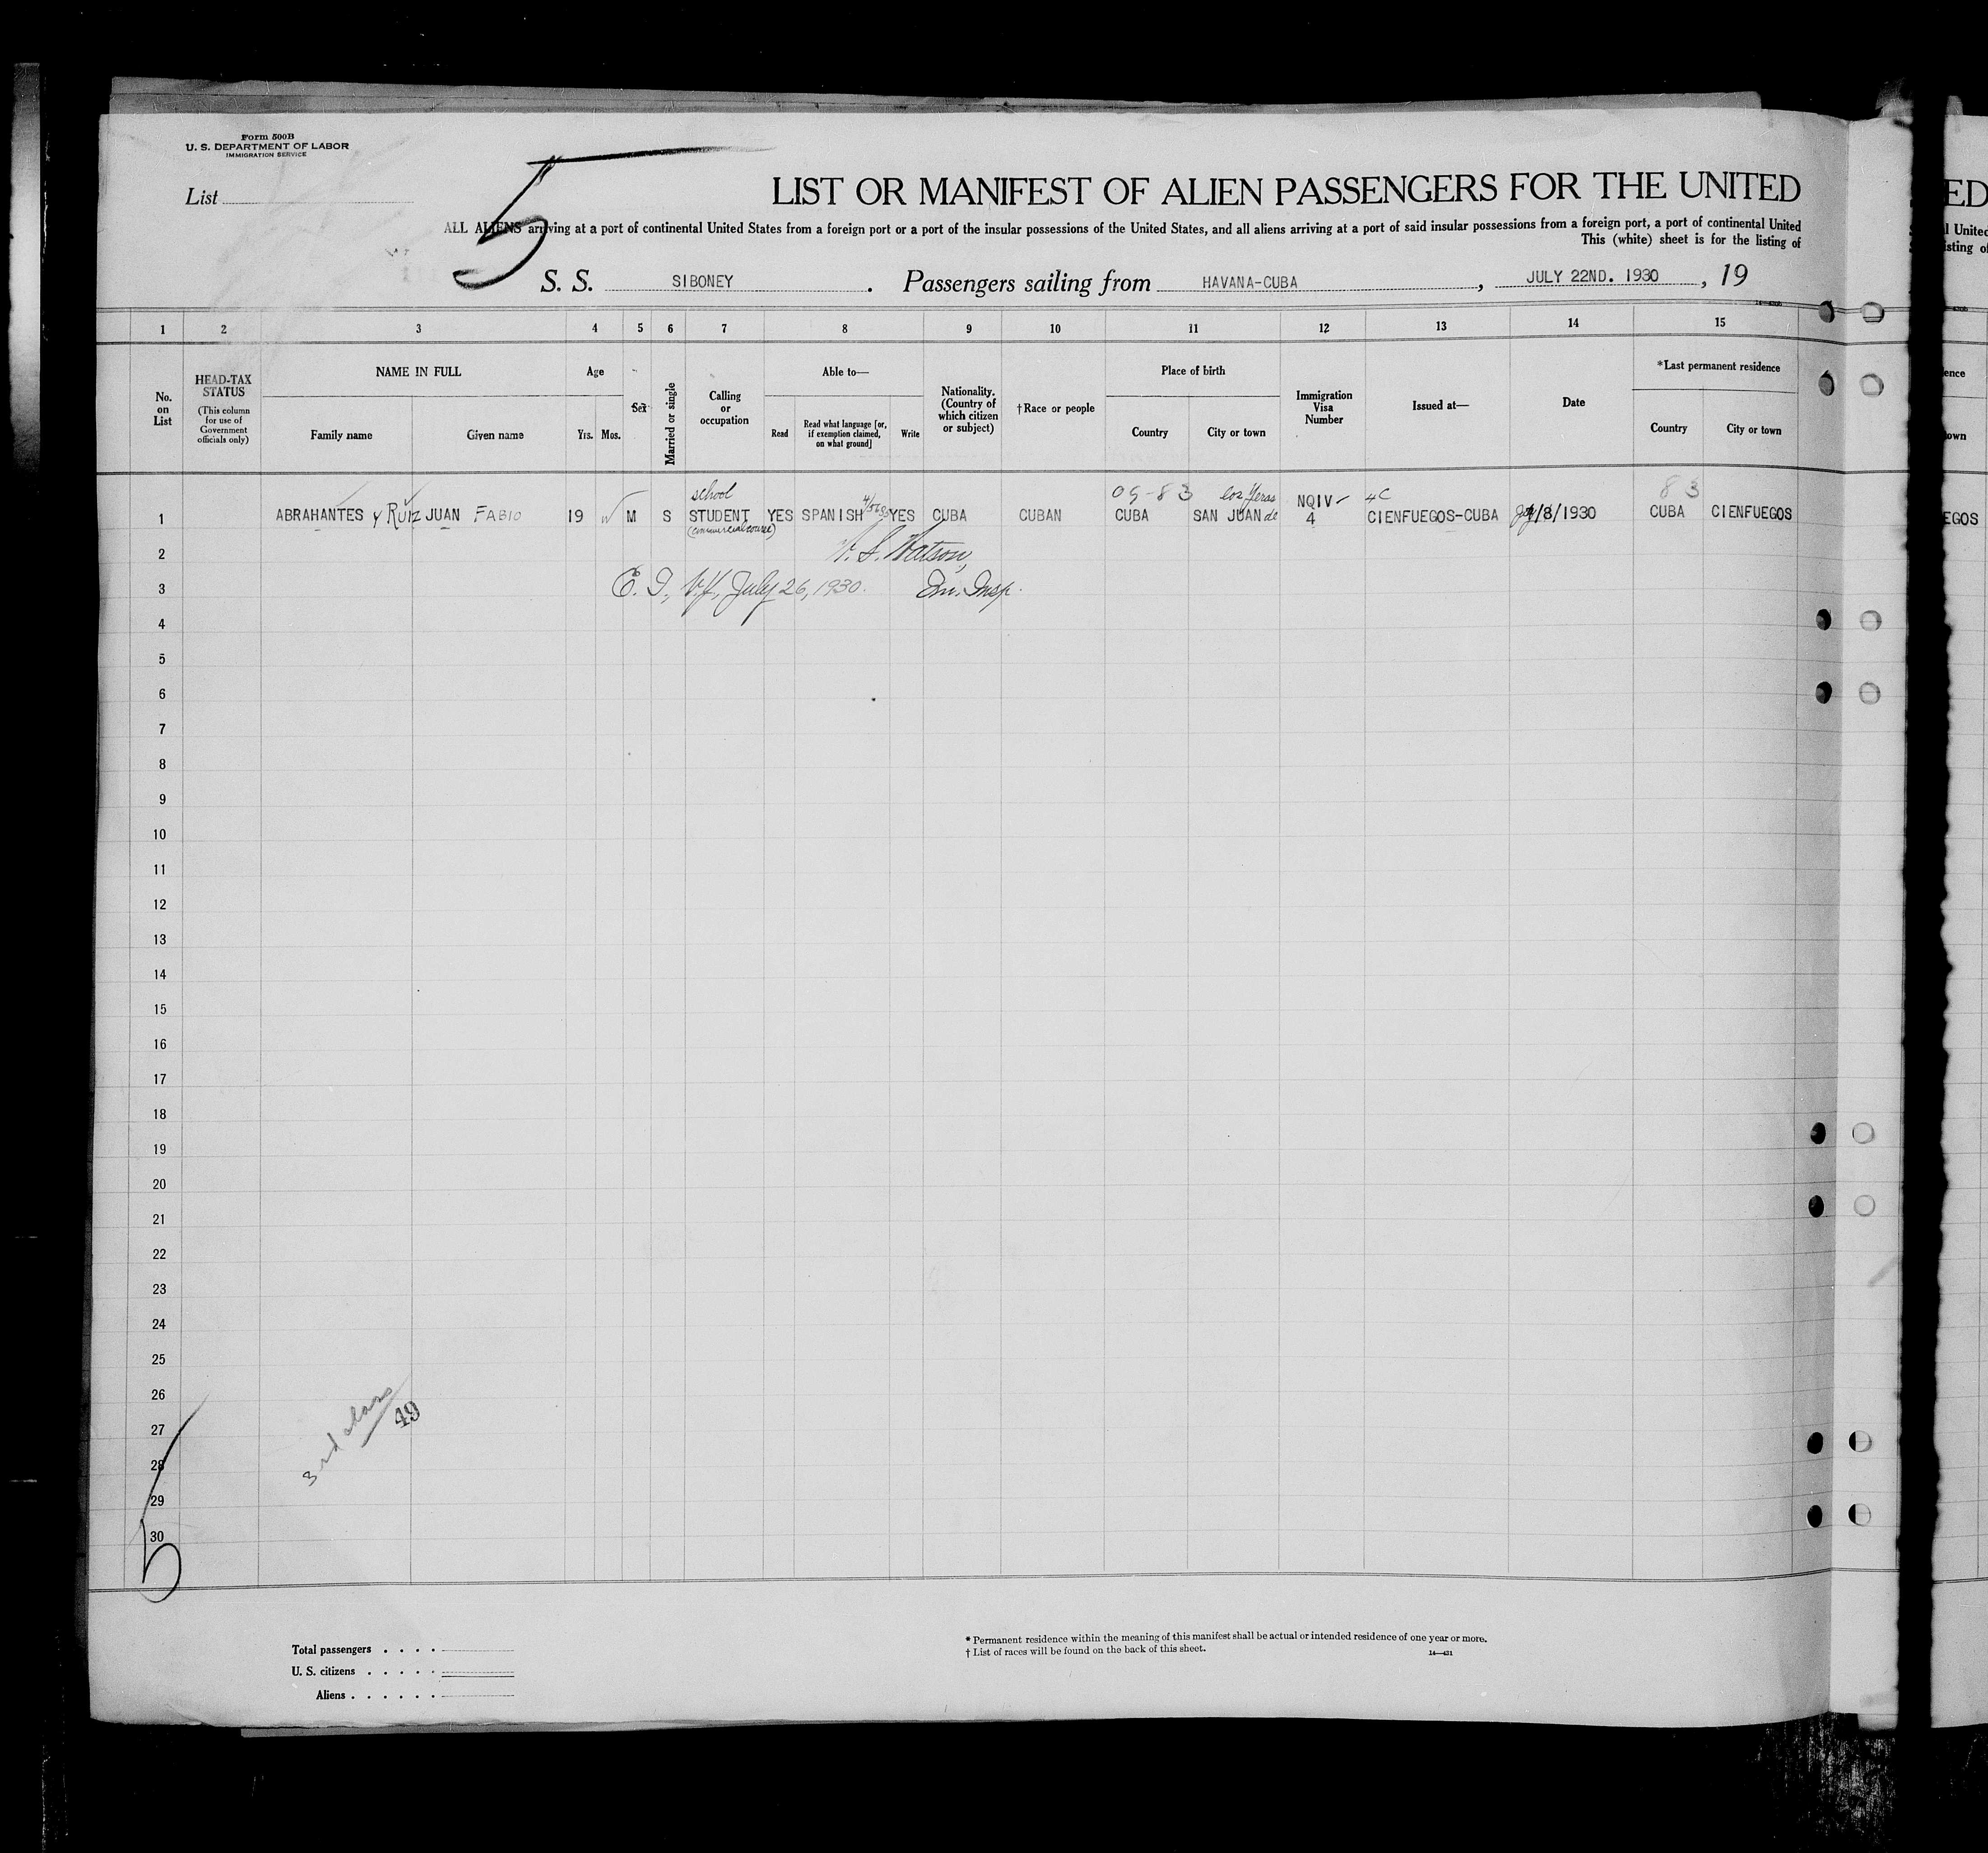 Form 500B
U. S. DEPARTMENT OF LABOR
IMMIGRATION SERVICE
List
5
LIST OR MANIFEST OF ALIEN PASSENGERS FOR THE UNITED
ALL ALIENS arriving at a port of continental United States from a foreign port or a port of the insular possessions of the United States, and all aliens arriving at a port of said insular possessions from a foreign port, a port of continental United
This (white) sheet is for the listing of
S. S. SIBONEY . Passengers sailing from HAVANA-CUBA , JULY 22ND. 1930 , 19
1 2 3 4 5 6 7 8 9 10 11 12 13 14 15
No. on List
HEAD-TAX STATUS
(This column for use of Government officials only)
NAME IN FULL
Family name Given name
Age
Yrs. Mos.
Sex
Married or single
Calling or occupation
Able to—
Read
Read what language [or, if exemption claimed, on what ground]
Write
Nationality. (Country of which citizen or subject)
†Race or people
Place of birth
Country City or town
Immigration Visa Number
Issued at—
Date
*Last permanent residence
Country City or town
school 09-83 los Yeras NQIV 4C 83
1 ABRAHANTES y Ruiz JUAN FABIO 19 M S STUDENT YES SPANISH YES CUBA CUBAN CUBA SAN JUAN de 4 CIENFUEGOS-CUBA /8/1930 CUBA CIENFUEGOS
(commercial course)
2 Watson,
3 July 26, 1930. Im. Insp.
4
5
6
7
8
9
10
11
12
13
14
15
16
17
18
19
20
21
22
23
24
25
26
27
28
29
30
3rd class
49
5
Total passengers . . . .
U. S. citizens . . . . .
Aliens . . . . . .
* Permanent residence within the meaning of this manifest shall be actual or intended residence of one year or more.
† List of races will be found on the back of this sheet.
14—431
ED
l United
isting of
ence
own
EGOS